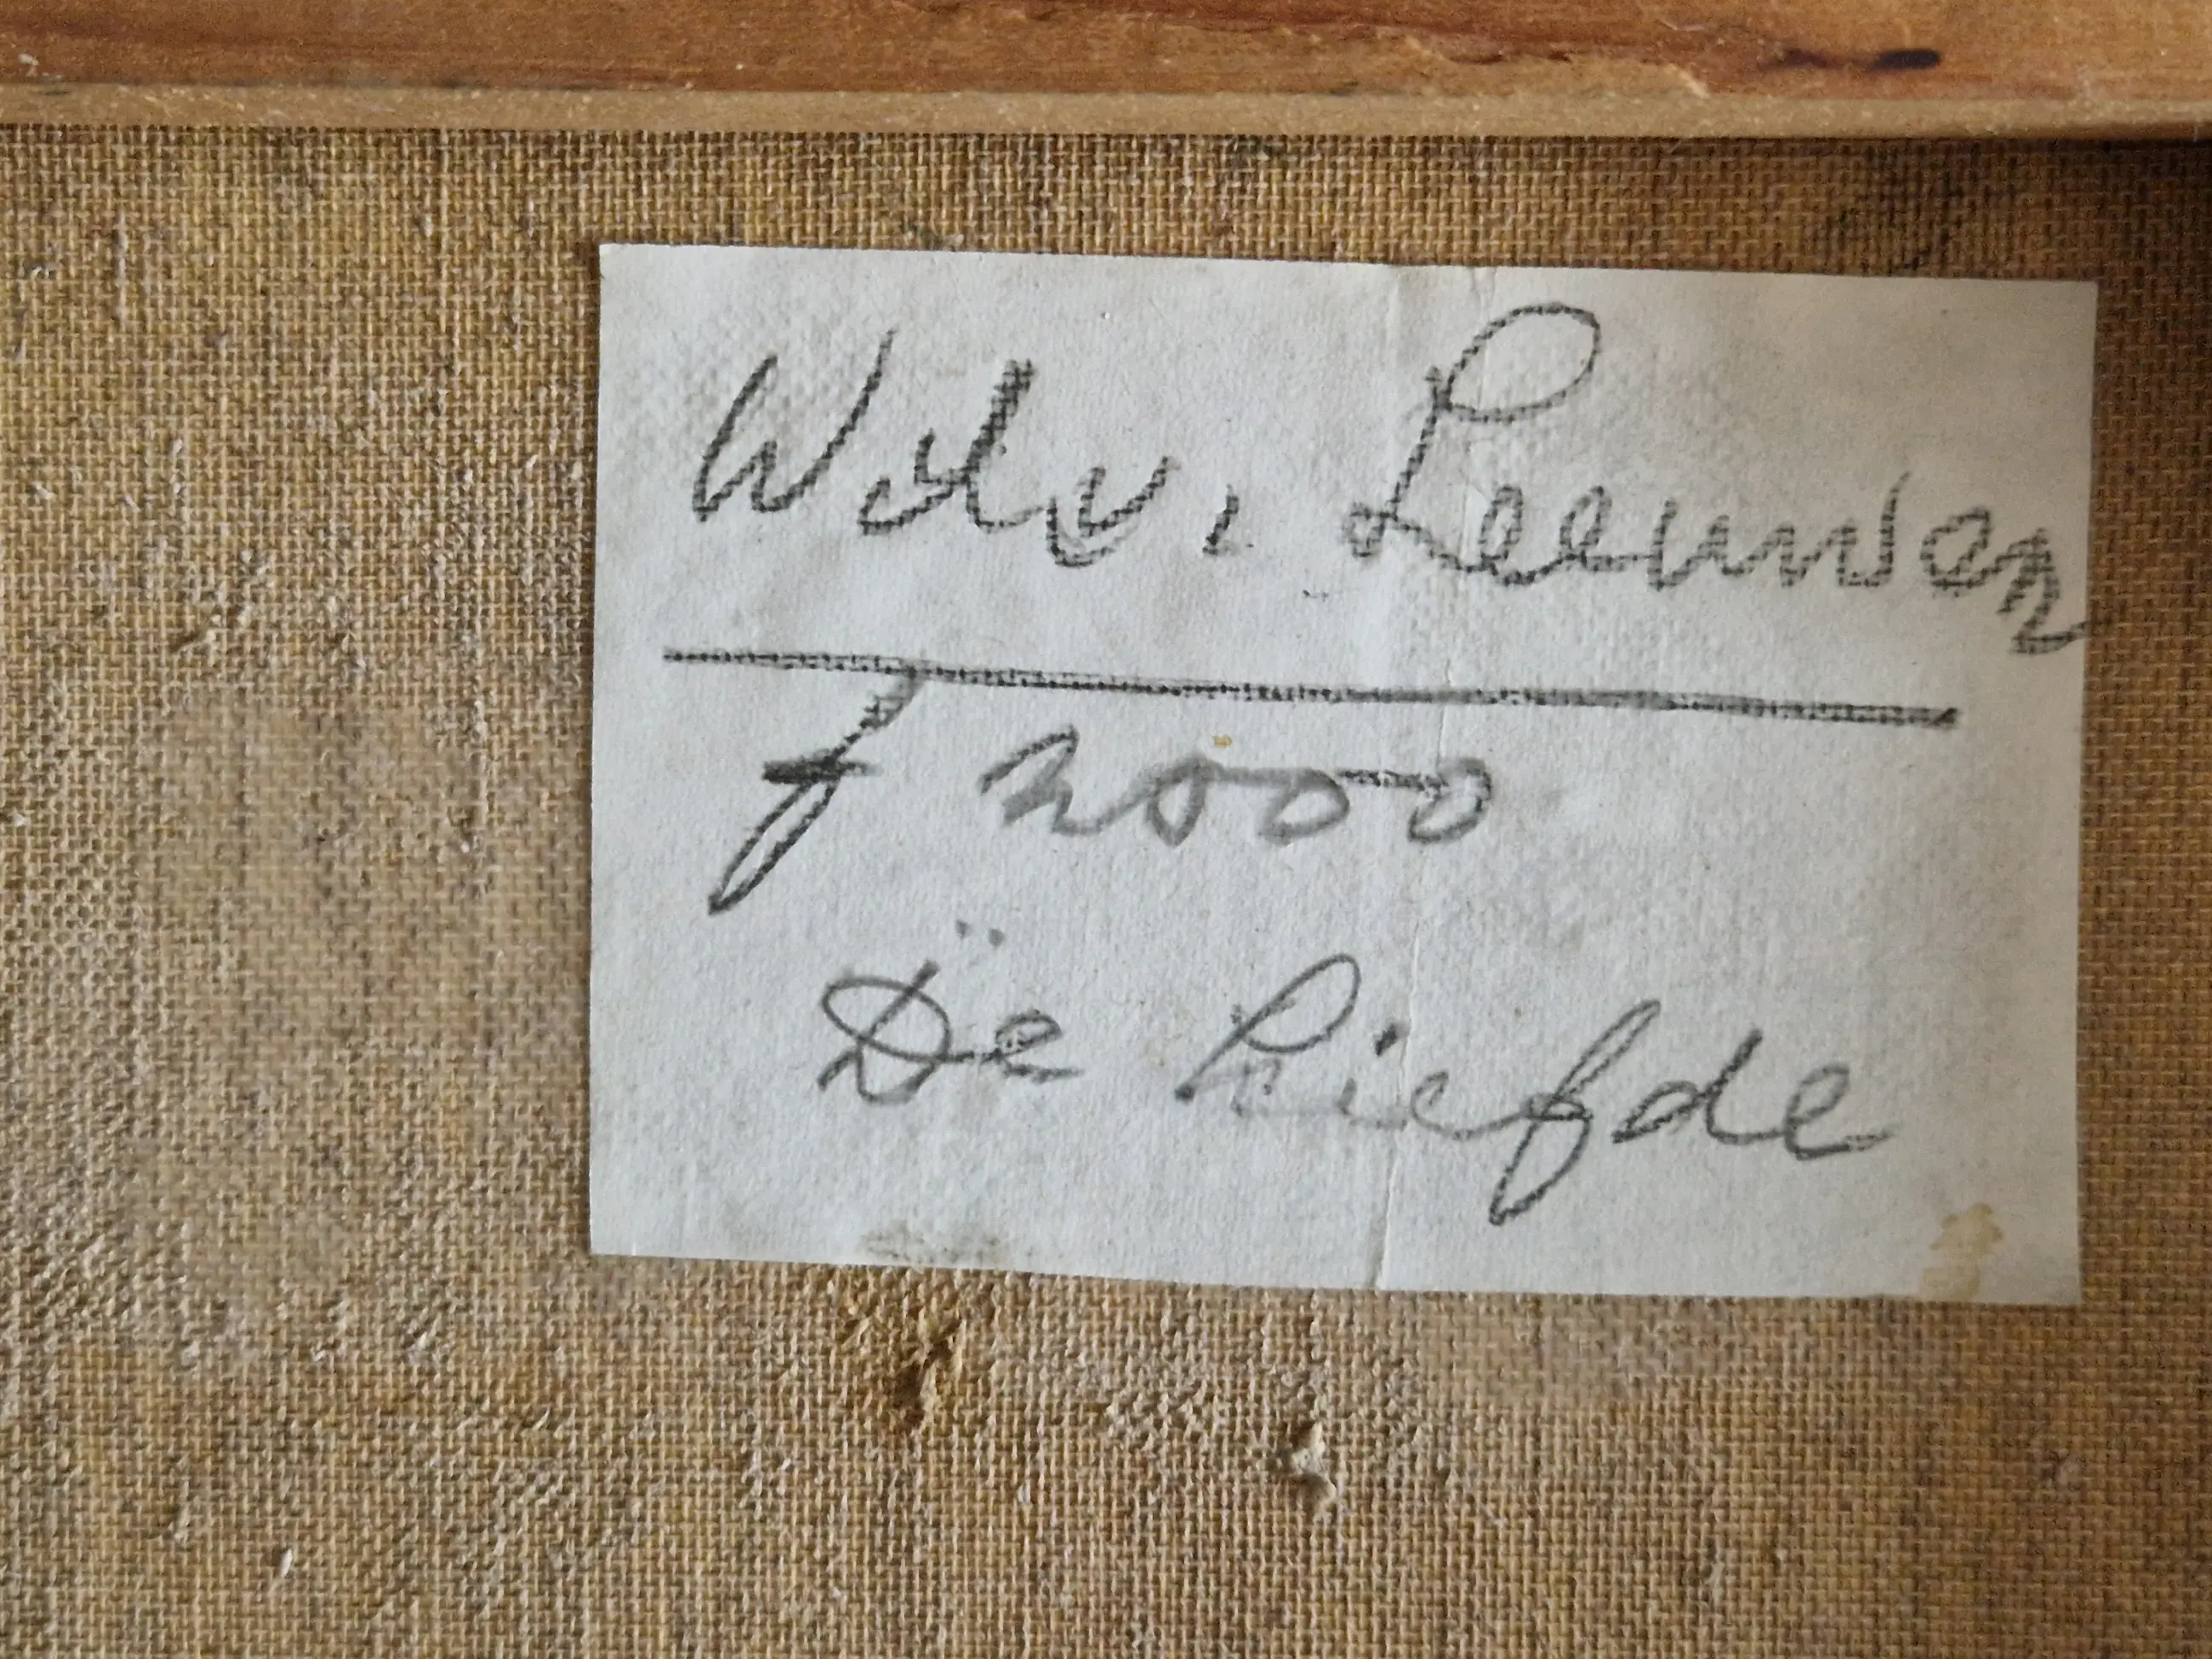 Wil v. Leeuwen
f 2000
De Liefde